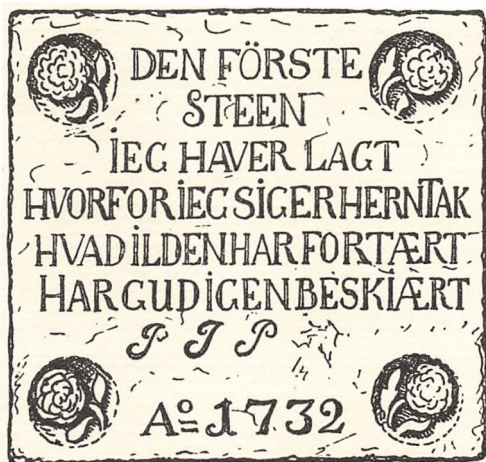 DEN FÖRSTE
STEEN
IEG HAVER LAGT
HVORFOR IEG SIGER HERN TAK
HVAD ILDEN HAR FORTÆRT
HAR GUD IGEN BESKIÆRT
P J P
Ao 1732